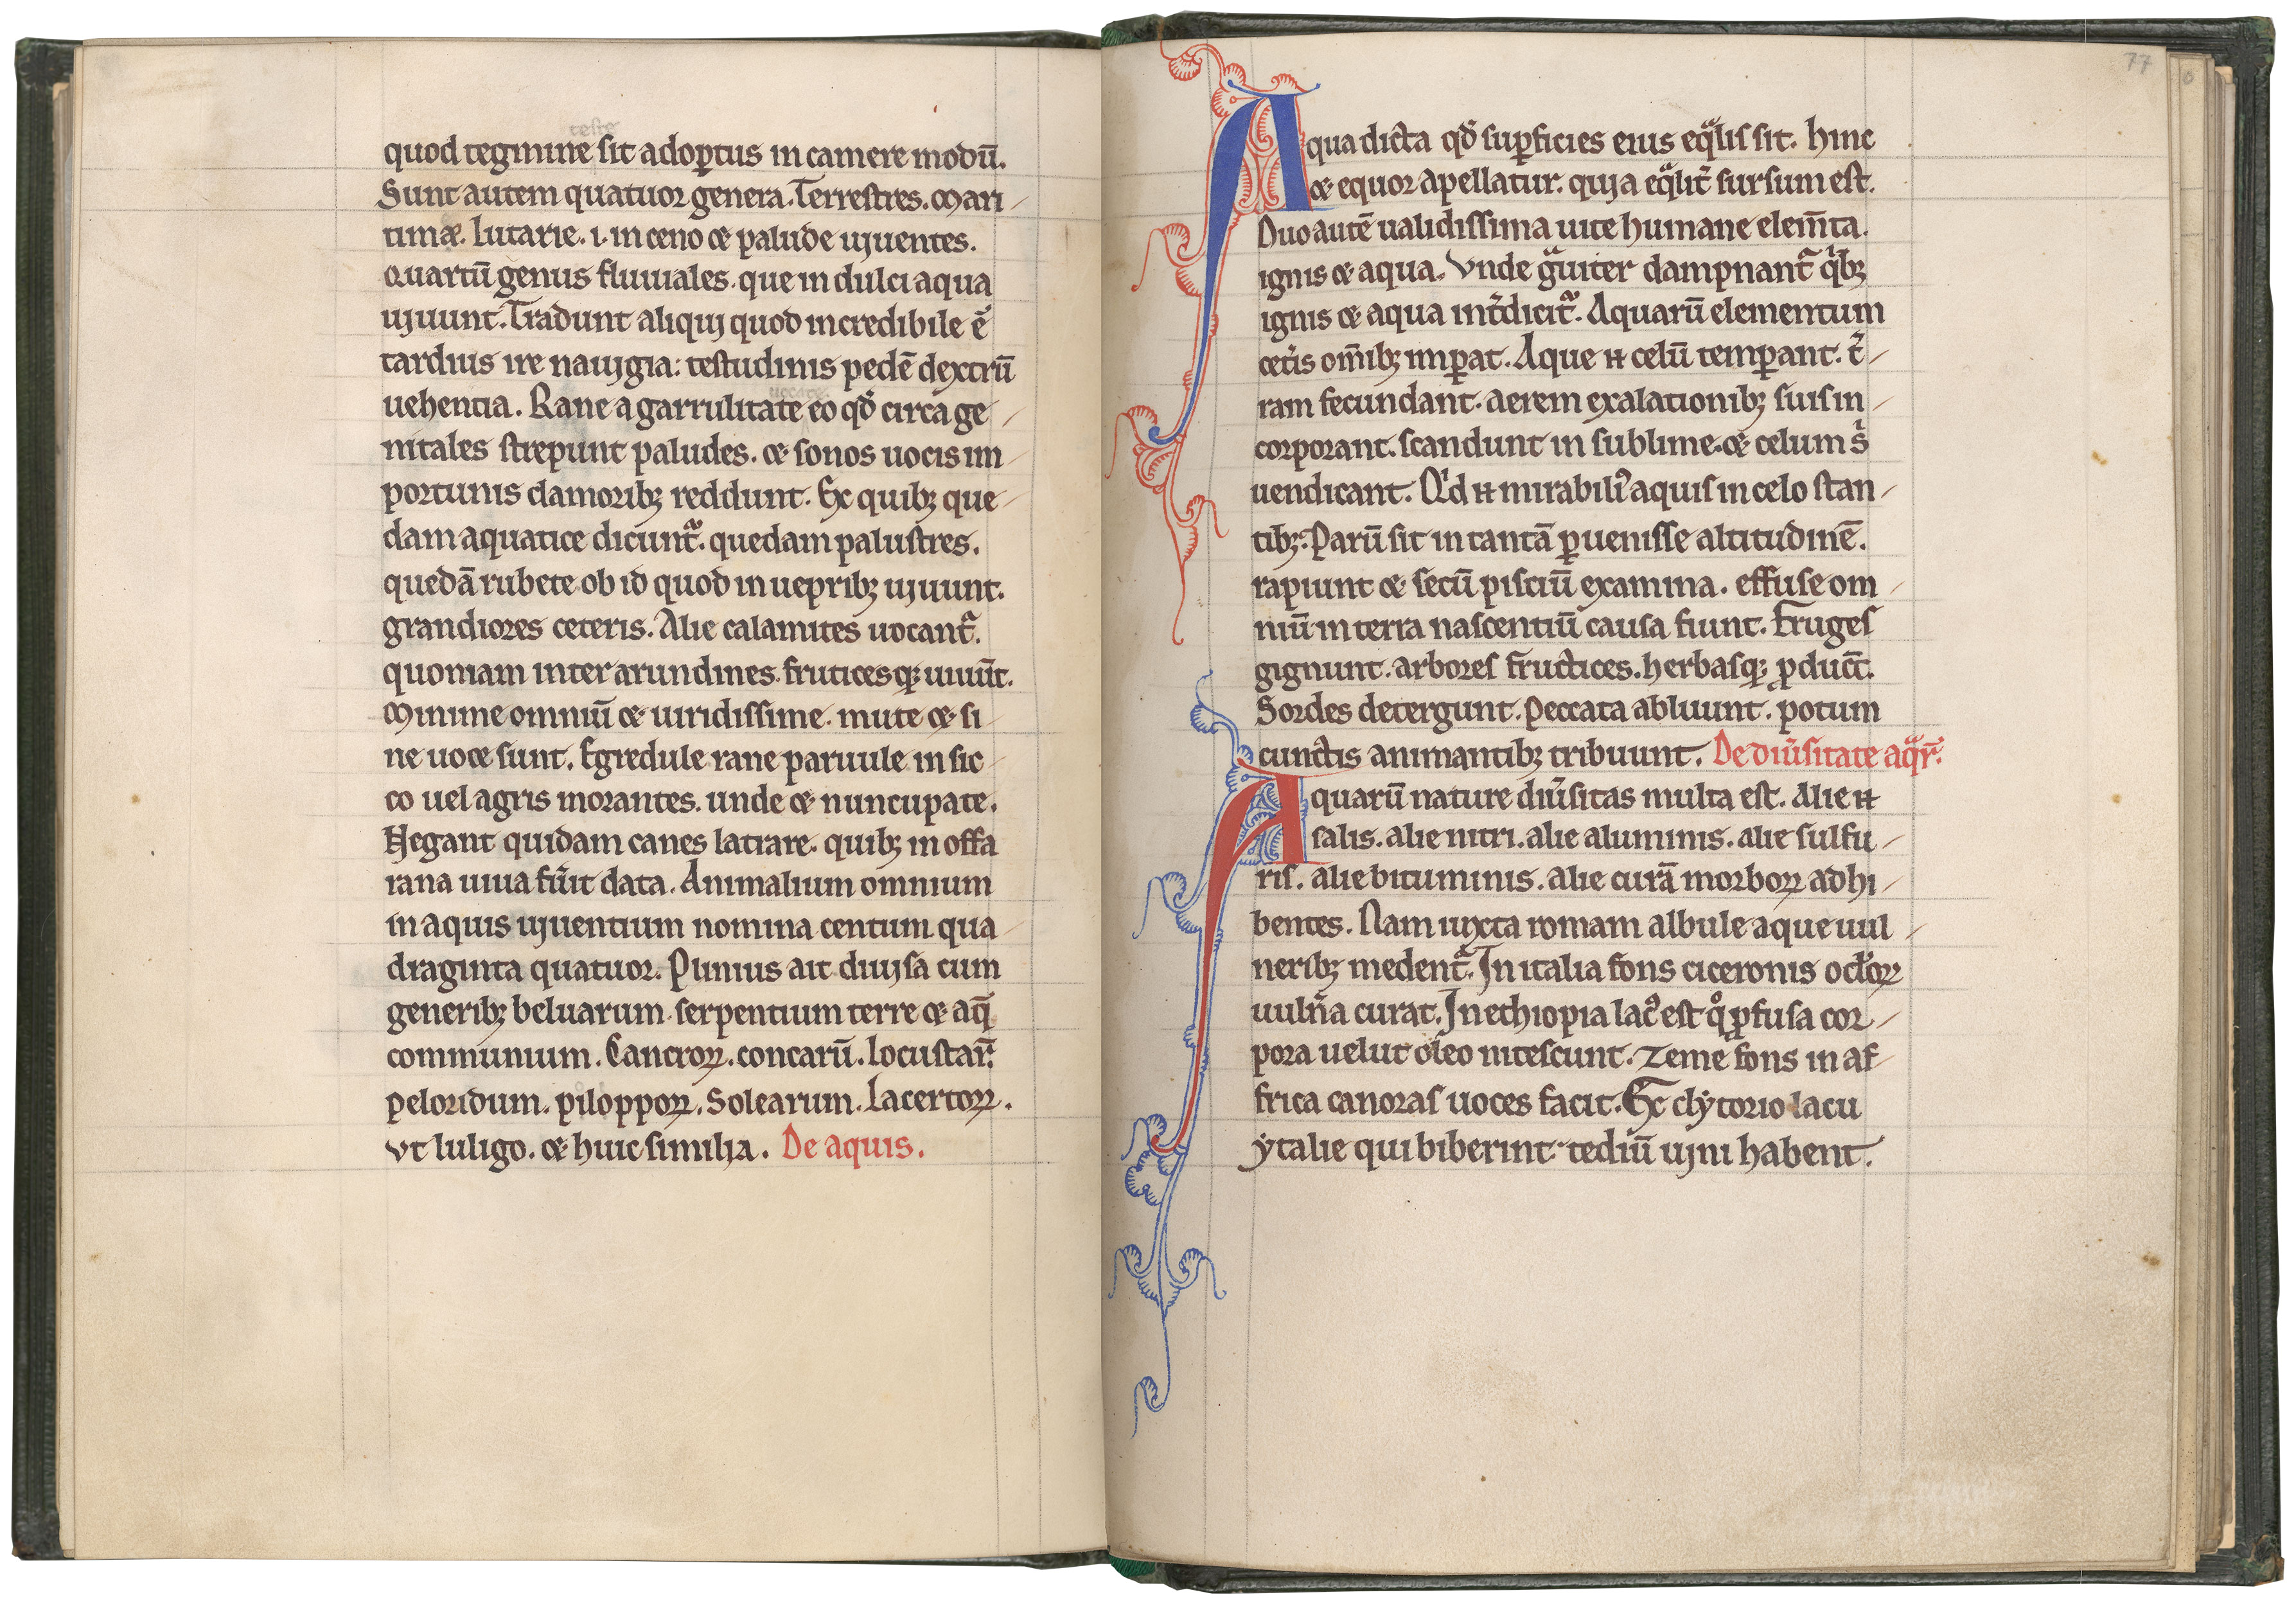 teste
quod tegmine sit adop̄tus in camere modū.
Sunt autem quatuor genera. Terrestres. Mari
timæ. lutarie. i. in ceno & palude uiuentes.
Quartū genus fluuiales. que in dulci aqua
uiuunt. Tradunt aliqui quod incredibile ē
tardius ire nauigia: testudinis pedē dextrū
uehentia. Rane a garrulitate eo qđ circa ge
uocate
nitales strepunt paludes. & sonos uocis im
portunis clamoribꝫ reddunt. Ex quibꝫ que
dam aquatice dicunt᷑. quedam palustres.
quedā rubete ob id quod in uepribꝫ uiuunt.
grandiores ceteris. Alie calamites uocant᷑.
quoniam inter arundines fruticesqꝫ uiuūt.
Minime omniū & uiridissime. mute & si
ne uoce sunt. Egredule rane paruule in sic
co uel agris morantes. unde & nuncupate.
Negant quidam canes latrare. quibꝫ in offa
rana uiua fu̾it data. Animalium omnium
in aquis uiuentium nomina centum qua
draginta quatuor. Plinius ait diuisa cum
generibꝫ beluarum serpentium terre & aq̄
communium. Cancroꝝ. concarū. locustaꝝ
peloridum. piloppoꝝ. Solearum. Lacertoꝝ.
vt luligo. & huic similia. De aquis.
77
Aqua dicta qđ sup̄ficies eius eq̈lis sit. hinc
& equor apellatur. quia eq̈lit̾ sursum est.
Duo autē ualidissima uite humane elem̄ta.
ignis & aqua. Vnde gͣuiter dampnant᷑ qͥbꝫ
ignis & aqua int̾dicit᷑. Aquarū elementum
cet̾is om̄ibꝫ imꝑat. Aque ⁊ celū temꝑant. t̾
ram fecundant. aerem exalationibꝫ suis in
corporant. scandunt in sublime. & celum s̾
uendicant. Qͥd ⁊ mirabiliꝰ aquis in celo stan
tibꝫ: Parū sit in tantā ꝑuenisse altitudinē.
rapiunt & secū pisciū examina. effuse om
niū in terra nascentiū causa fiunt. Fruges
gignunt. arbores fructices. herbasqꝫ ꝓducūt.
Sordes detergunt. Peccata abluunt. potum
cunctis animantibꝫ tribuunt. De diu̾sitate aqͣꝝ.
Aquarū nature diu̾sitas multa est. Alie ⁊
salis. alie nitri. alie aluminis. alie sulfu
ris. alie bituminis. alie curā morboꝝ adhi
bentes. Nam iuxta romam albule aque uul
neribꝫ medent᷑. In italia fons ciceronis oc̄loꝝ
uuln̾a curat. In ethiopia lacꝰ est qͦ ꝑfusa cor
pora uelut oleo nitescunt. Zeme fons in af
frica canoras uoces facit. Ex clẏtorio lacu
ẏtalie qui biberint tediū uini habent.